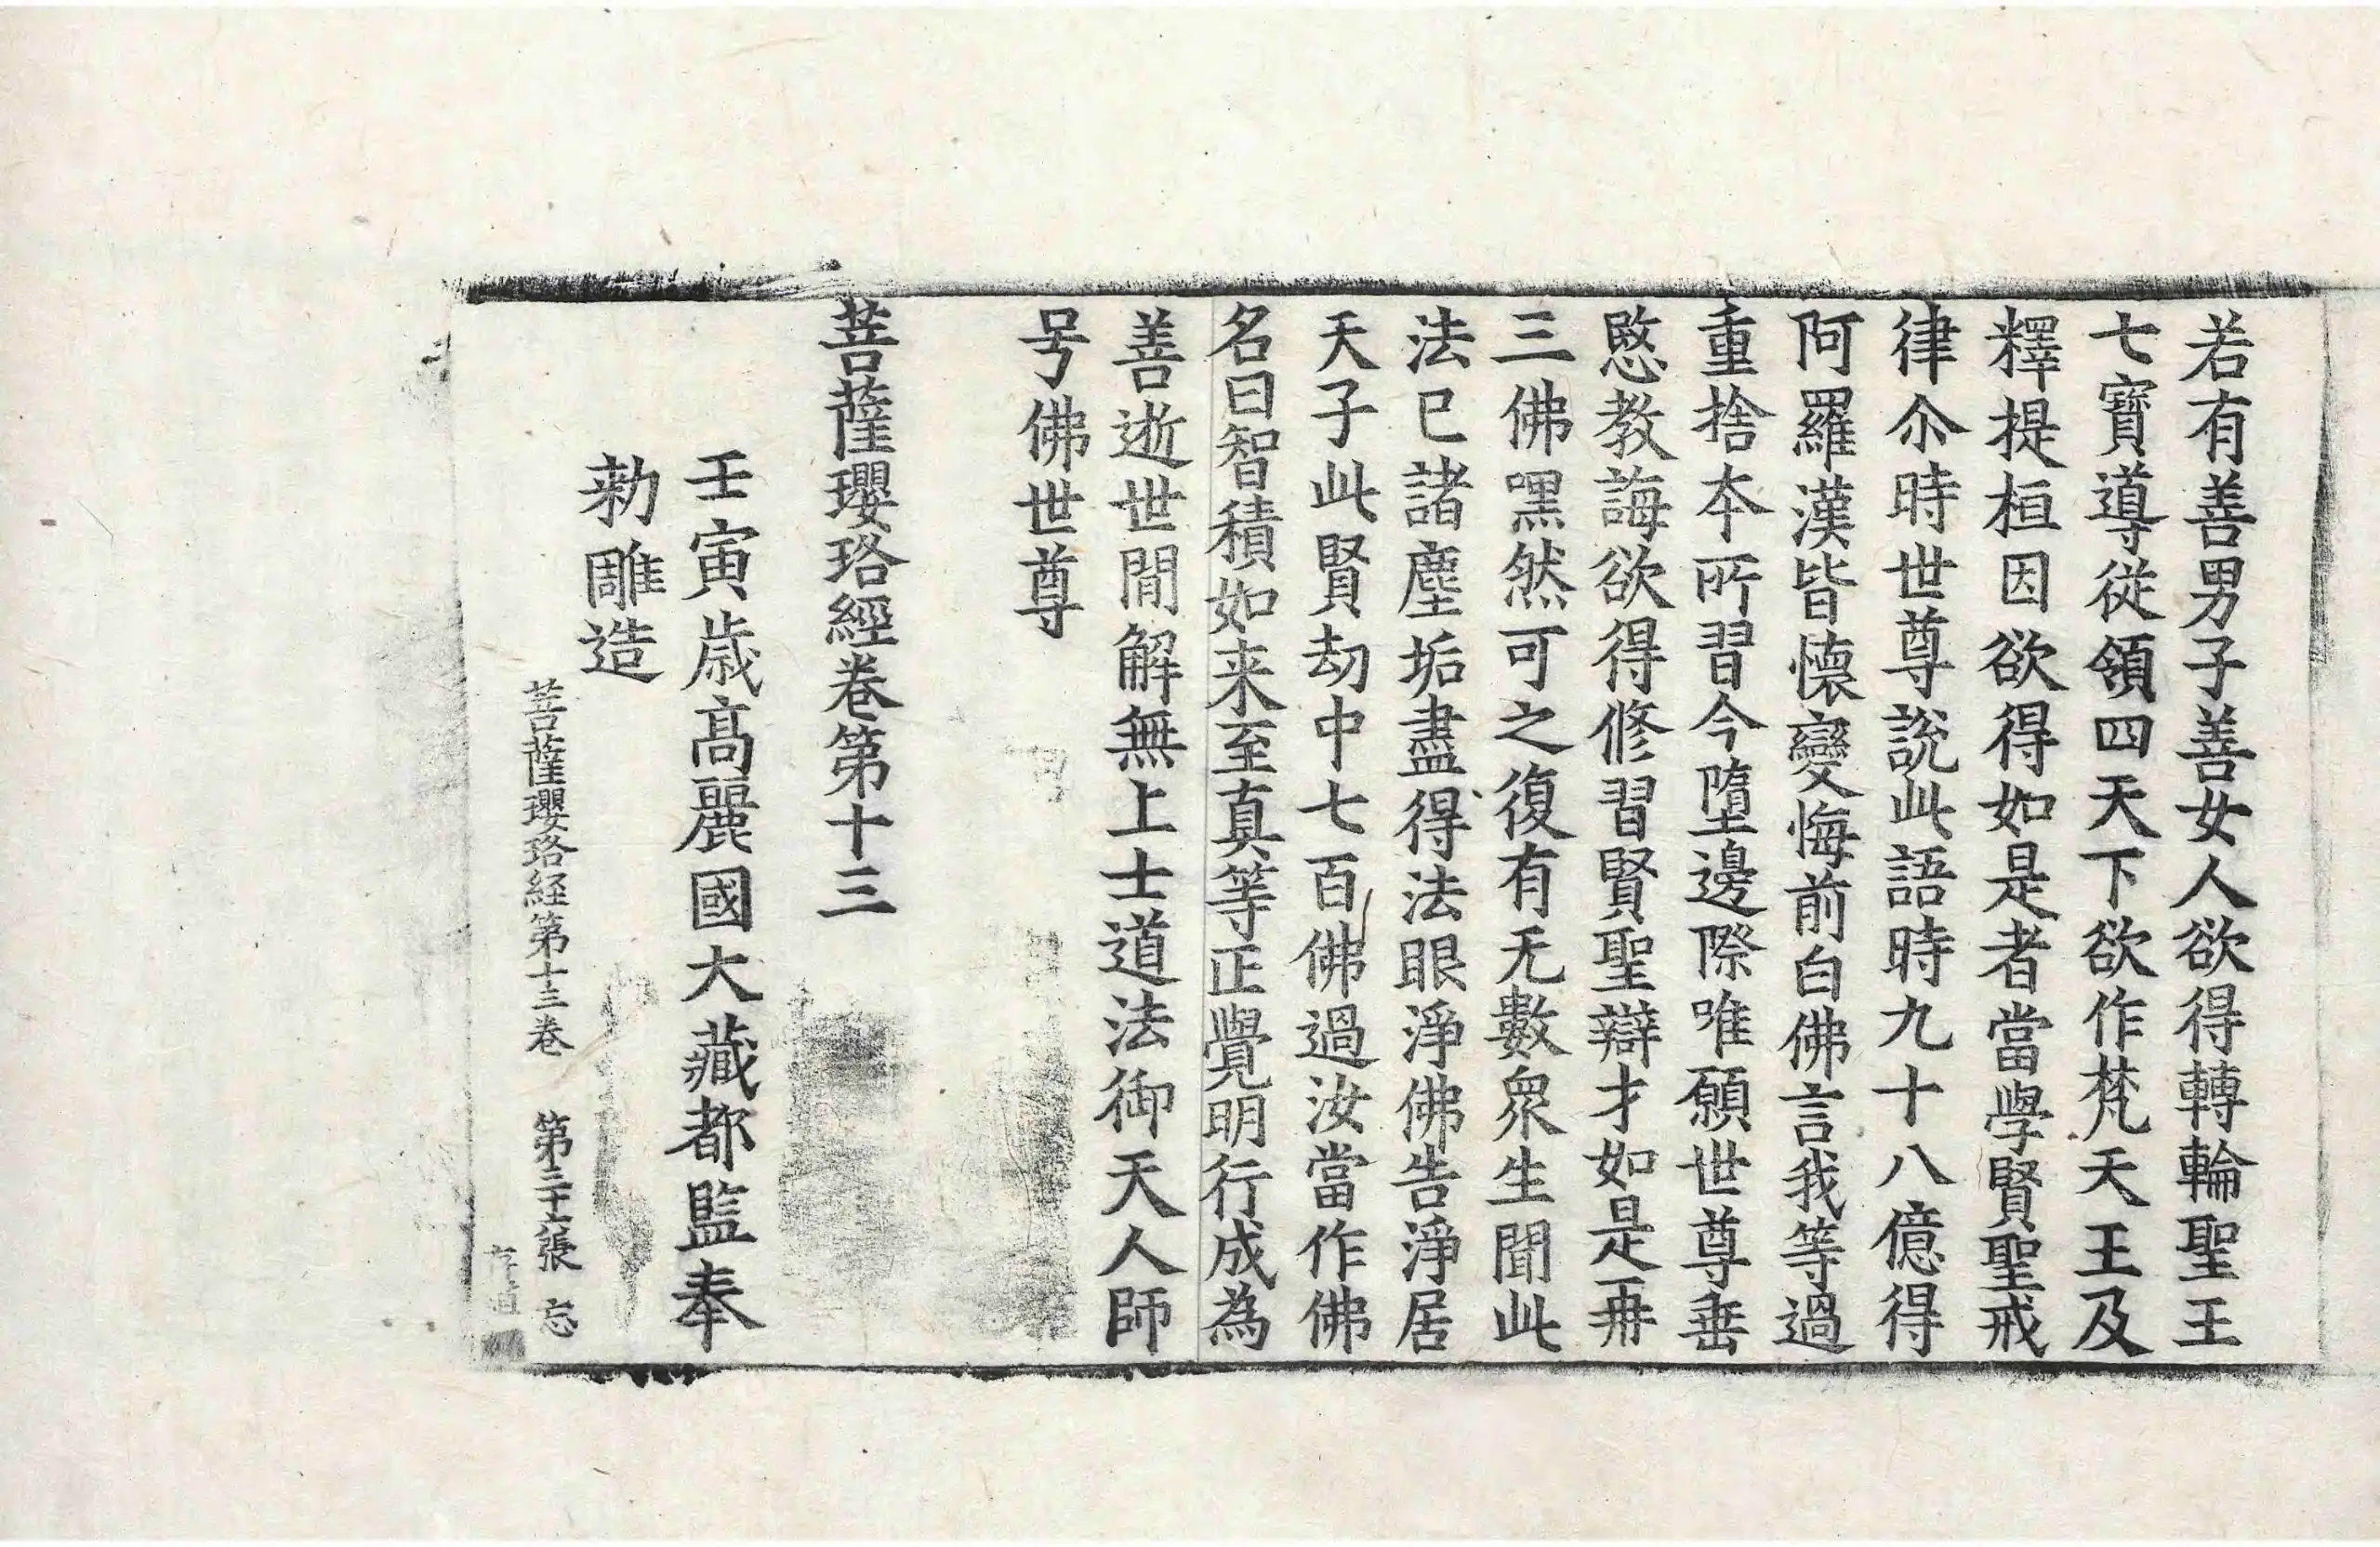 若有善男子善女人欲得轉輪聖王
七寶導從領四天下欲作梵天王及
釋提桓因欲得如是者當學賢聖戒
律尒時世尊說此語時九十八億得
阿羅漢皆懷變悔前白佛言我等過
重捨本所習今墮邊際唯願世尊垂
愍教誨欲得修習賢聖辯才如是再
三佛嘿然可之復有无數衆生聞此
法已諸塵垢盡得法眼淨佛告淨居
天子此賢劫中七百佛過汝當作佛
名曰智積如来至真等正覺明行成為
善逝世間解無上士道法御天人師
号佛世尊
菩薩瓔珞經卷第十三
壬寅歲高麗國大藏都監奉
勅雕造
菩薩瓔珞経第十三卷 第三十張 忘